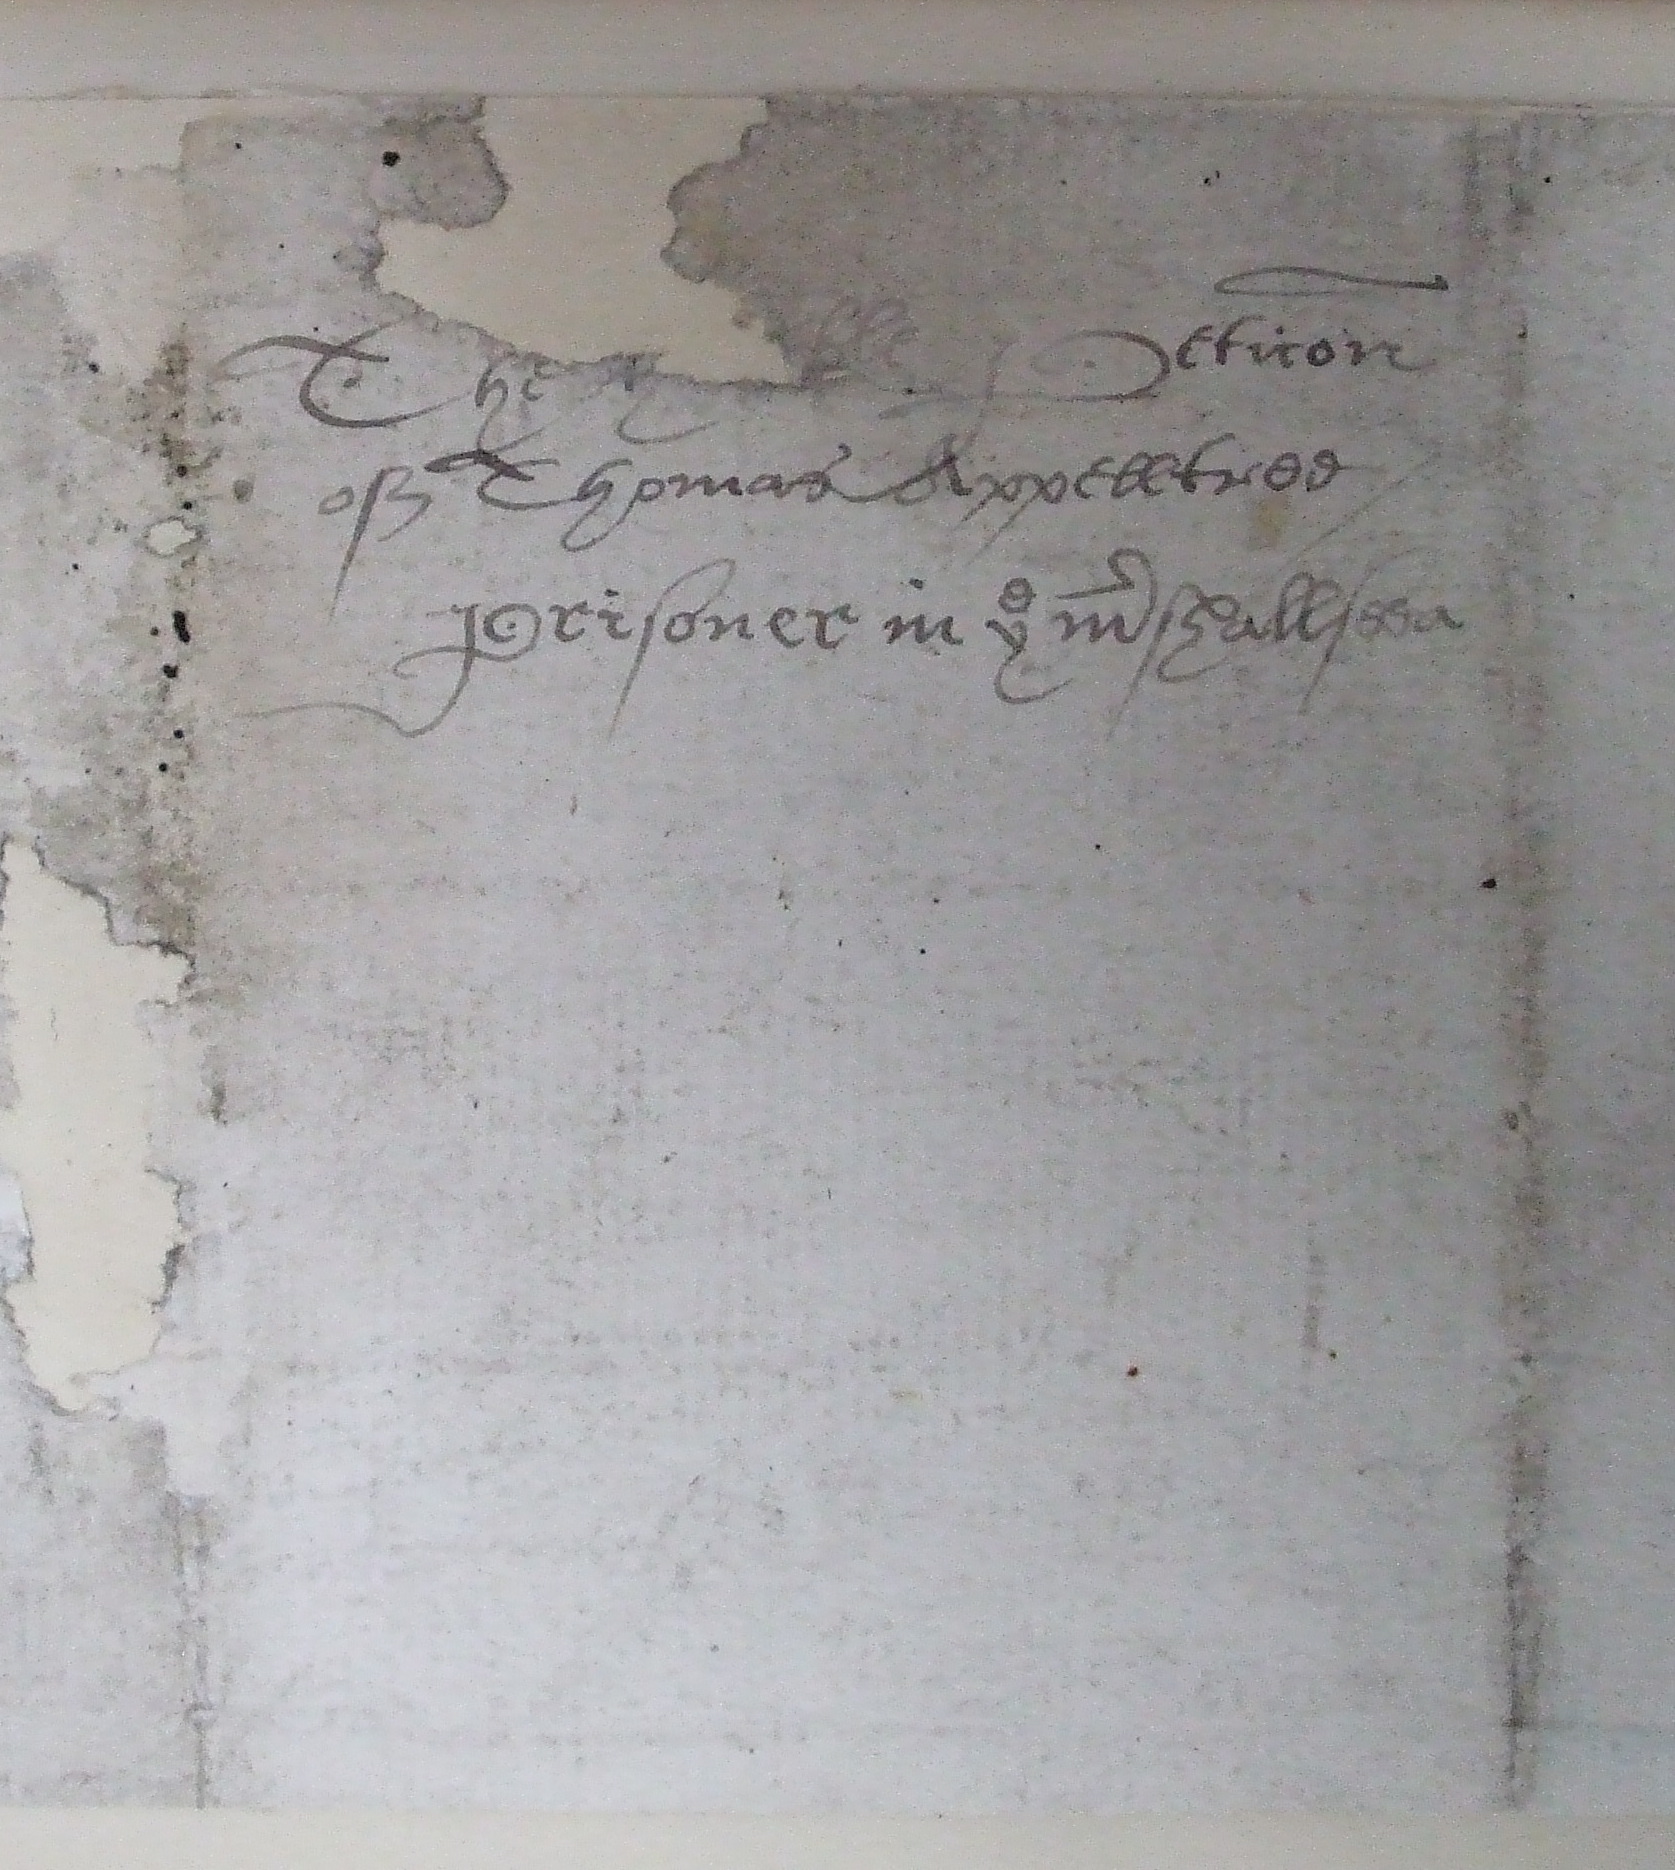 The Peticon
off Thomas Appelltree
prisoner in yͤ mʳshallsea